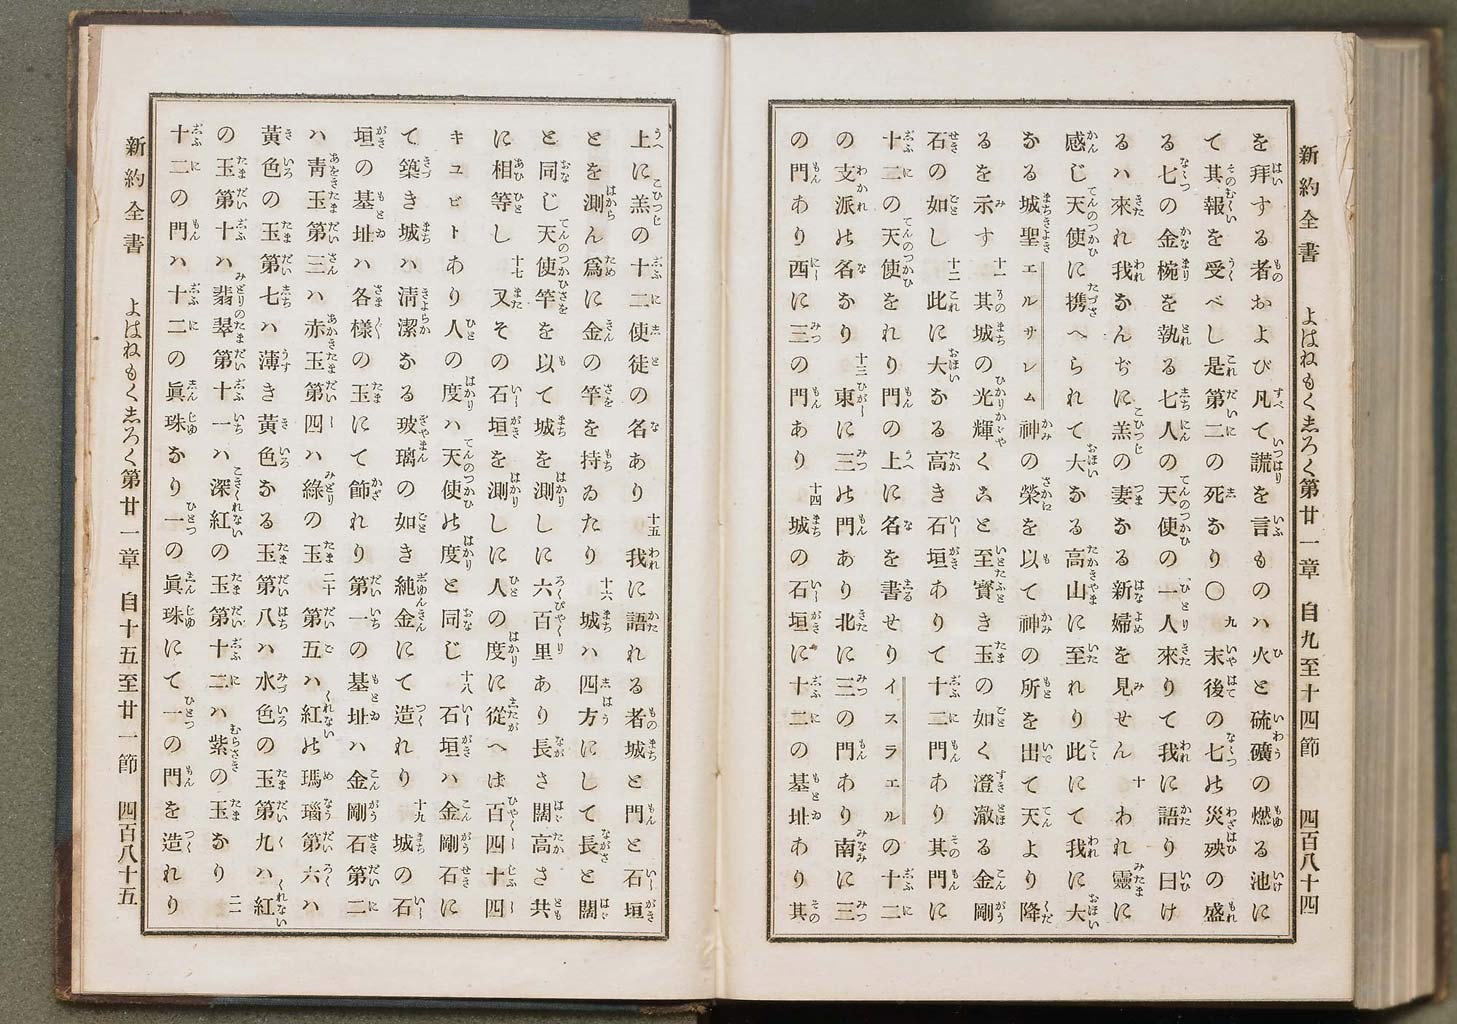 新約全書　よはねもくしろく第廿一章　自九至十四節　四百八十四
を拜する者および凡て謊を言ものハ火と硫礦の燃る池に
て其報を受べし是第二の死なり〇九末後の七の災殃の盛
る七の金椀を執る七人の天使の一人來りて我に語り曰け
るハ來れ我なんぢに羔の妻なる新婦を見せん十われ靈に
感じ天使に携へられて大なる高山に至れり此にて我に大
なる城聖エルサレム神の榮を以て神の所を出て天より降
るを示す十一其城の光輝くこと至寶き玉の如く澄澈る金剛
石の如し十二此に大なる高き石垣ありて十二門あり其門に
十二の天使をれり門の上に名を書せりイスラエルの十二
の支派の名なり十三東に三の門あり北に三の門あり南に三
の門あり西に三の門あり十四城の石垣に十二の基址あり其
上に羔の十二使徒の名あり十五我に語れる者城と門と石垣
とを測ん爲に金の竿を持ゐたり十六城ハ四方にして長と闊
と同じ天使竿を以て城を測しに六百里あり長さ闊さ高さ共
に相等し十七又その石垣を測しに人の度に從へは百四十四
キユビトあり人の度ハ天使の度と同じ十八石垣ハ金剛石に
て築き城ハ淸潔なる玻璃の如き純金にて造れり十九城の石
垣の基址ハ各樣の玉にて飾れり第一の基址ハ金剛石第二
ハ靑玉第三ハ赤玉第四ハ綠の玉二十第五ハ紅の瑪瑙第六ハ
黃色の玉第七ハ薄き黃色なる玉第八ハ水色の玉第九ハ紅
の玉第十ハ翡翠第十一ハ深紅の玉第十二ハ紫の玉なり二一
十二の門ハ十二の眞珠なり一の眞珠にて一の門を造れり
新約全書　よはねもくしろく第廿一章　自十五至廿一節　四百八十五